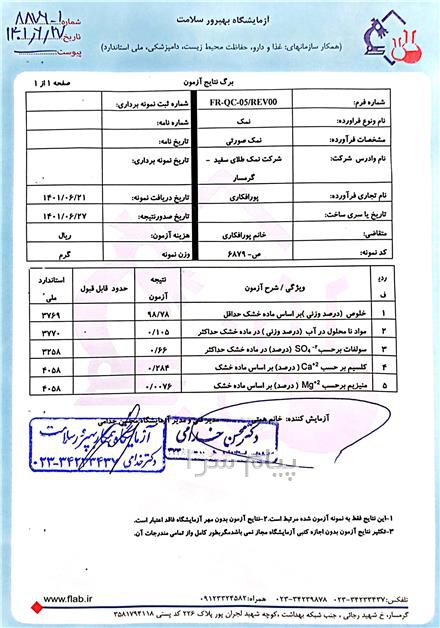 آزمایشگاه بهپرور سلامت
(همکار سازمانهای: غذا و دارو، حفاظت محیط زیست، دامپزشکی، ملی استاندارد)
شماره: ۸۸۷۶-۱
تاریخ: ۱۴۰۱/۶/۲۷
پیوست
برگ نتایج آزمون
صفحه ۱ از ۱
شماره فرم: FR-QC-05/REV00 شماره ثبت نمونه برداری:
نام ونوع فراورده: نمک شماره نامه:
مشخصات فرآورده: نمک صورتی تاریخ نامه:
نام وادرس شرکت: شرکت نمک طلای سفید - گرمسار تاریخ نمونه برداری:
نام تجاری فرآورده: پورافکاری تاریخ دریافت نمونه: ۱۴۰۱/۰۶/۲۱
تاریخ یا سری ساخت: تاریخ صدورنتیجه: ۱۴۰۱/۰۶/۲۷
متقاضی: خانم پورافکاری هزینه آزمون: ریال
کد نمونه: ص- ۶۸۷۹ وزن نمونه گرم
ردیف ویژگی / شرح آزمون نتیجه آزمون حدود قابل قبول استاندارد ملی
۱ خلوص (درصد وزنی )بر اساس ماده خشک حداقل ۹۸/۷۸ ۳۷۶۹
۲ مواد نا محلول در آب (درصد وزنی ) در ماده خشک حداکثر ۰/۱۰۵ ۳۷۷۰
۳ سولفات برحسب SO₄⁻² (درصد) در ماده خشک حداکثر ۰/۶۶ ۳۲۵۸
۴ کلسیم بر حسب Ca⁺² (درصد) بر اساس ماده خشک ۰/۲۸۴ ۴۰۵۸
۵ منیزیم برحسب Mg⁺² (درصد) بر اساس ماده خشک ۰/۰۰۷۶ ۴۰۵۸
آزمایش کننده: خانم همتی
مدیر فنی و مدیر آزمایشگاه محسن خدامی
دکتر محسن خدامی
دکتر خدامی ۰۲۳-۳۴۲۳۳۴۳۷
پیام سرا
۱-این نتایج فقط به نمونه آزمون شده مرتبط است.۲-نتایج آزمون بدون مهر آزمایشگاه فاقد اعتبار است.
۳-تکثیر نتایج آزمون بدون اجازه کتبی آزمایشگاه مجاز نمی باشدمگربطور کامل واز تمامی مندرجات آن.
تلفکس: ۰۲۳-۳۴۲۳۳۴۳۷ ۰۲۳-۳۴۲۳۹۸۷۸ همراه: ۰۹۱۲۳۳۲۴۵۸۲
www.flab.ir
گرمسار، خ شهید رجائی ، جنب شبکه بهداشت ،کوچه شهید لجران پور پلاک ۲۲۶ کد پستی ۳۵۸۱۷۹۴۱۱۸